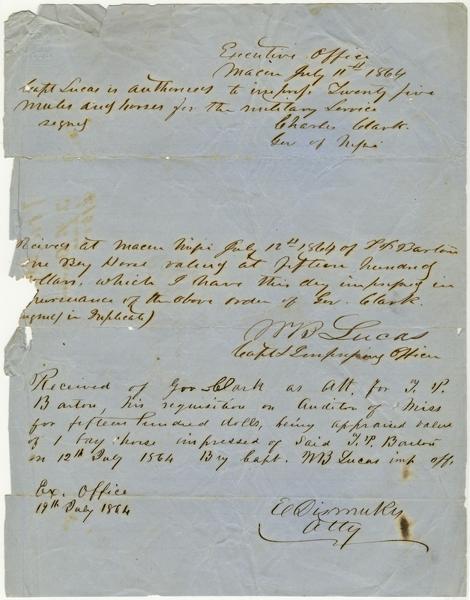 Executive Office
Macon July 11th 1864
Capt Lucas is authorized to impress Twenty five
mules and horses for the military service
signed Charles Clark.
Gov of Mipi
Received at Macon Mipi July 12th 1864 of Barton
one Bay Horse valued at fifteen hundred
dollars, which I have this day impressed in
pursuance of the above order of Gov. Clark.
signed in Duplicate)
WB Lucas
Capt & Impressing Officer
Received of Gov Clark as Att. for T. P.
Barton, his requisition on Auditor of Miss
for fifteen hundred dolls, being appraised value
of 1 bay horse impressed of said T. P. Barton
on 12th July 1864 By Capt. WB Lucas imp off.
Ex. Office
19th July 1864
E Dismukes
Atty